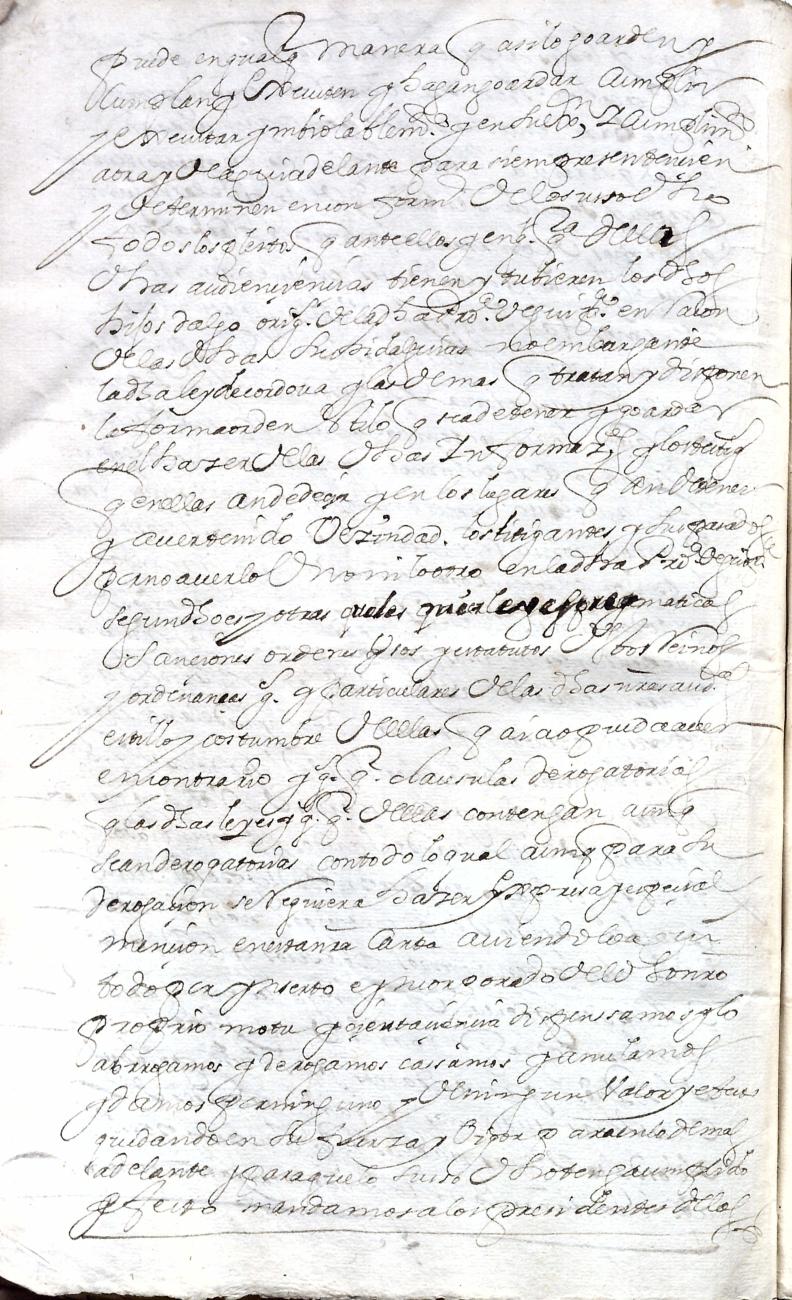 puede en qualqr manera q asi lo goarden y
cumplan y executen y hagan goardar cumplir
y executar ymbiolablemte y en su efeto y cumplimto
aora y de aqui adelante para siempre sentencien
y determinen en conformd de lo suso dho
todos los pleitos q ante ellos y en qlqra dellas
dhas audiencias tienen y tubieren los dhos
hijos dalgo origs de la dha Prova de guipca en raçon
de las dhas su hidalguias no embargante
la dha ley de cordova y las demas q tratan y disponen
la forma orden stilo q se a de tener y goardar
en el hazer de las dhas Informaz.es y los testigos
q en ellas an de deçir y en los lugares q an de tener
y aver tenido Vezindad los litigantes y su pasados
para no averlo uno ni lo otro en la dha Prova de guipca
segun dho es y otras quales quier leyes y prematicas
sanciones ordenes usos y estatutos destos Reinos
y ordenanças gs y particulares de las dhas nras auds
estillo y costumbre dellas q aia o pueda aver
en contrario y qlqr clausulas derogatorias
q las dhas leyes y qlqra dellas contengan aunq
sean derogatorias con todo lo qual aunq para su
derogacion se Requiera hazer expresa y especial
mencion en esta nra Carta aviendolo aqui
todo por ynserto e yncorporado del dho nro
proprio motu y cierta ciencia dispenssamos y lo
abrrogamos y derogamos cassamos y anulamos
y damos por ninguno y de ningun Valor y efeto
quedando en su fuerza y Vigor para en lo demas
adelante y para que lo suso dho tenga cumplido
efecto mandamos a los presidentes de los